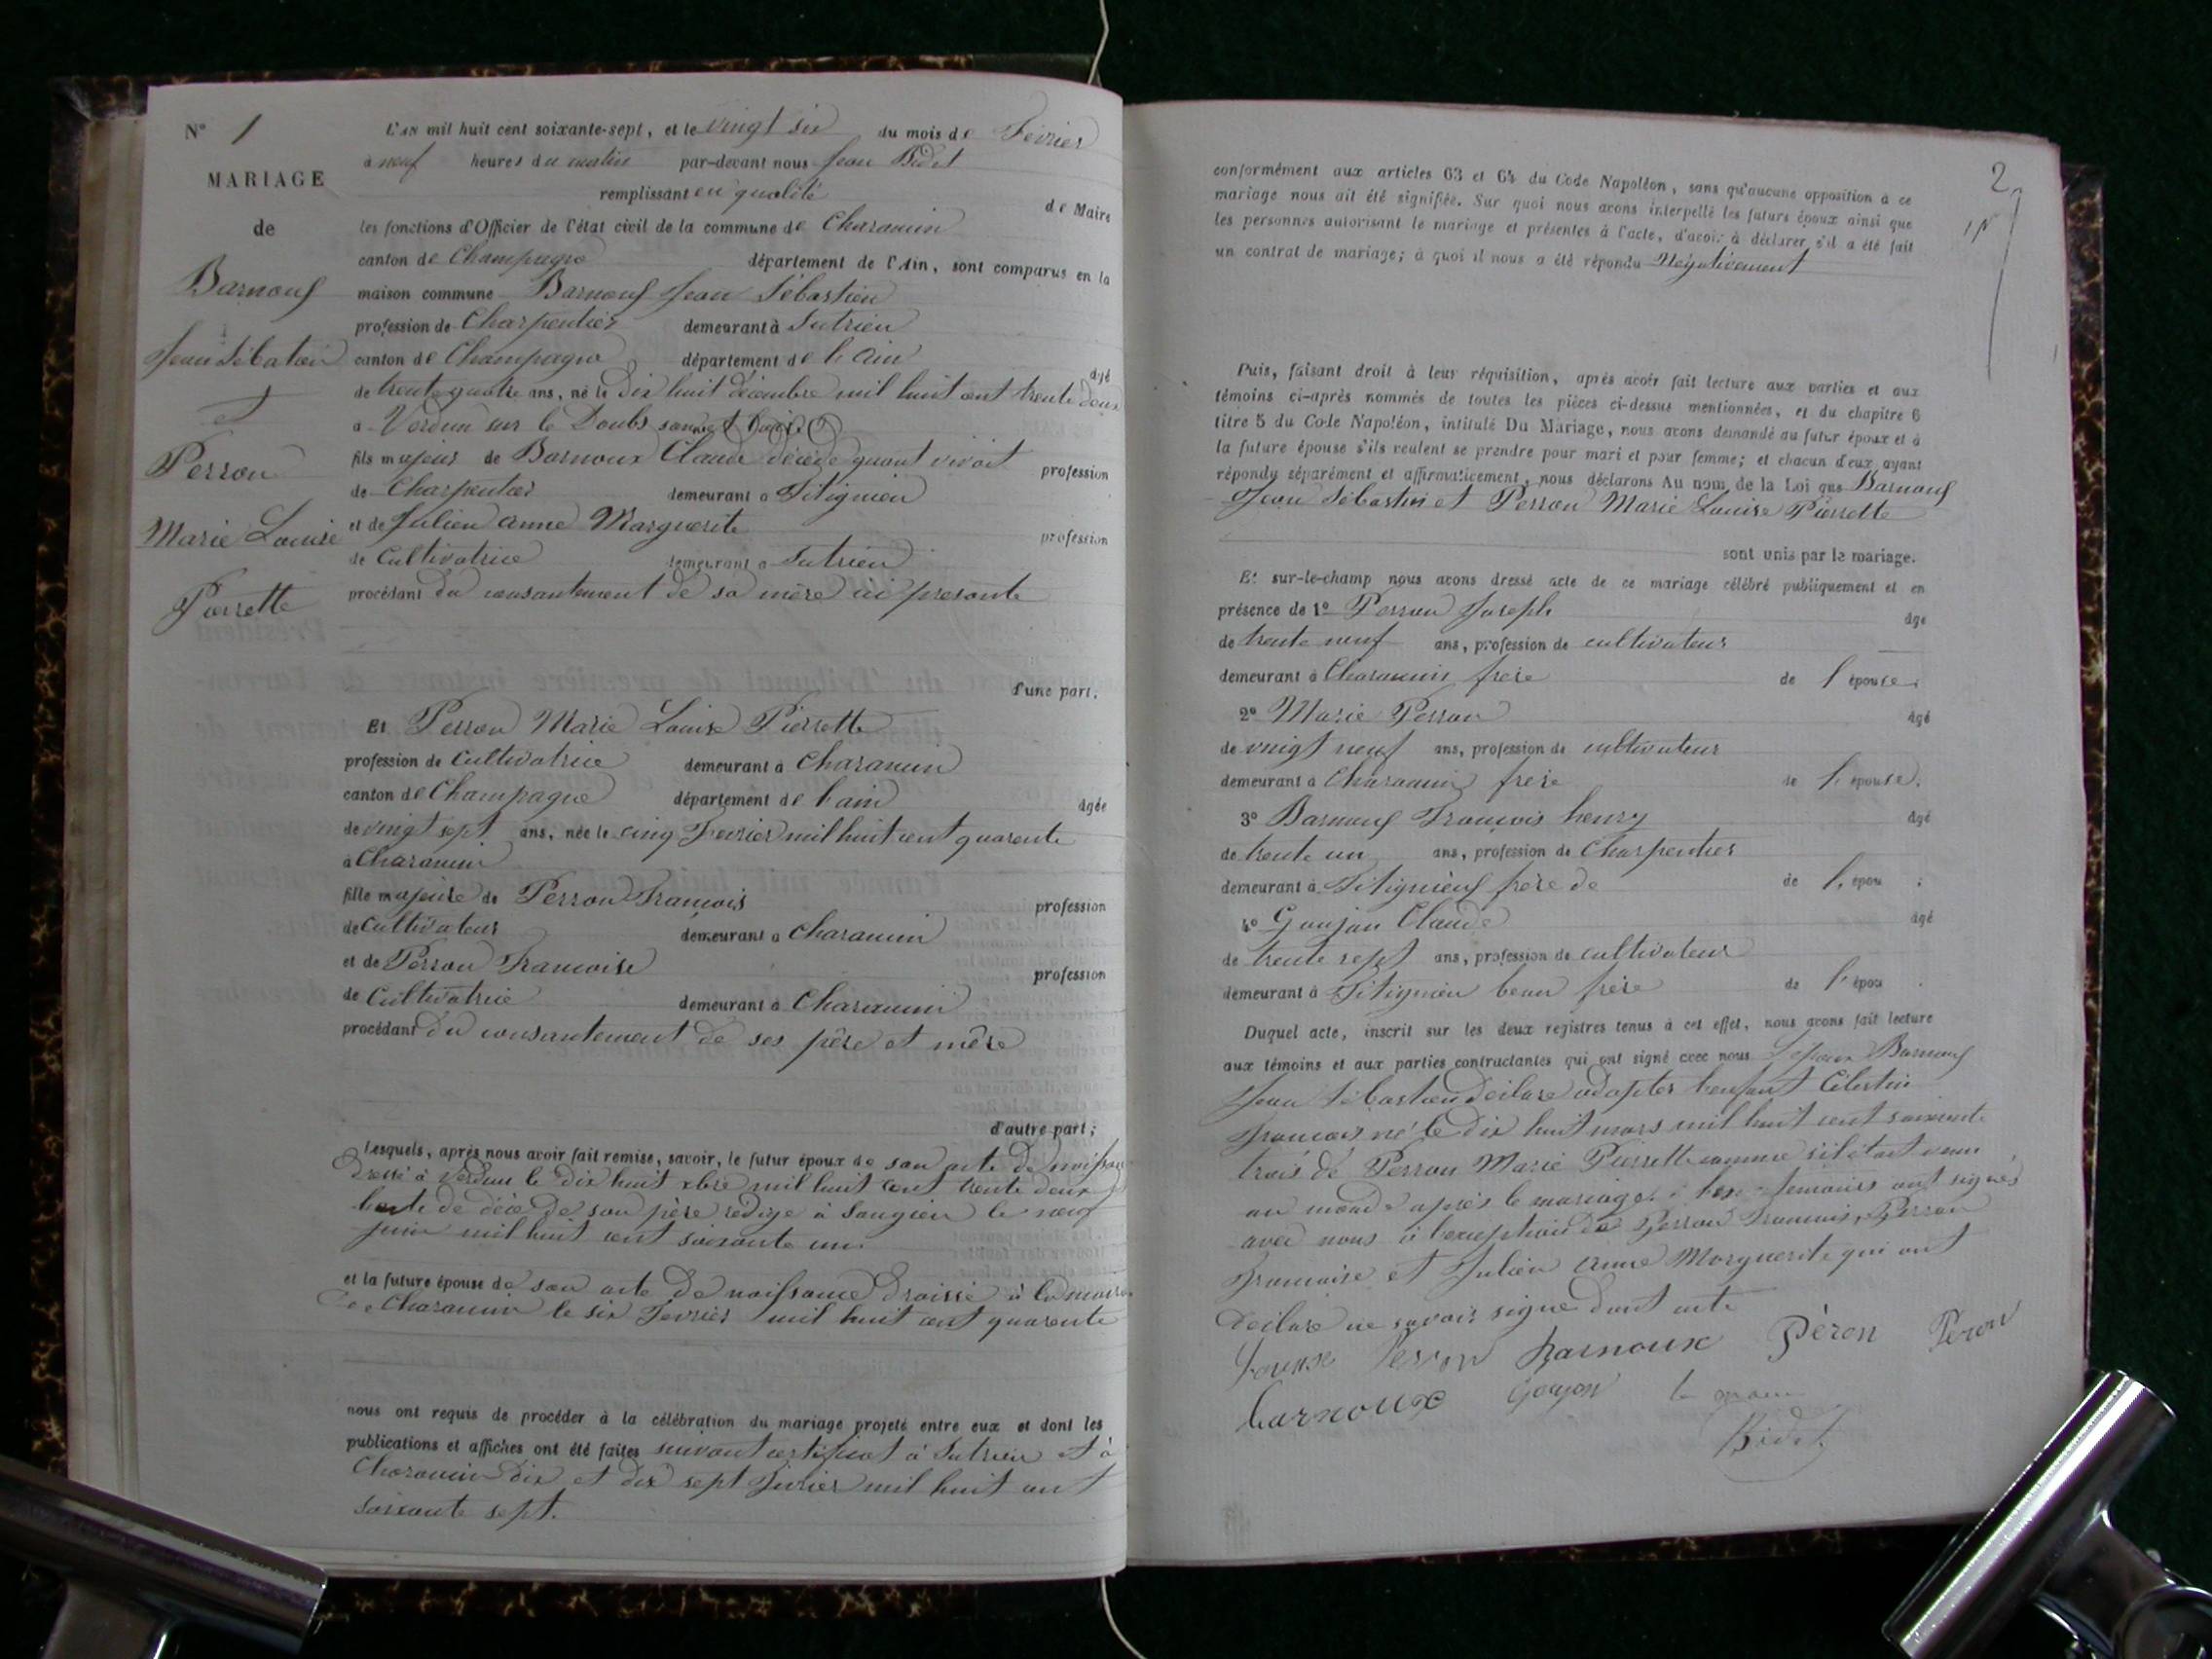 N° 1
MARIAGE
de
Barnouf
Jean Sébatien
et
Perron
Marie Louise
Pierrette
L'AN mil huit cent soixante-sept, et le vingt six du mois de Fevrier
à neuf heures du matin par-devant nous Jean Bidet
remplissant en qualité de Maire
les fonctions d'Officier de l'état civil de la commune de Charancin
canton de Champagne département de l'Ain, sont comparus en la
maison commune Barnouf Jean Sébastien
profession de Charpentier demeurant à Sutrieu
canton de Champagne département de l'ain âgé
de trente quatre ans, né le dix huit décembre mil huit cent trente deux
à Verdun sur le Doubs
fils majeur de Barnoux Claude décédé quant vivait profession
de Charpentier demeurant à Fitignieu
et de Julien Anne Marguerite profession
de Cultivatrice demeurant à Sutrieu
procédant du consantement de sa mère ici presante
d'une part.
Et Perron Marie Louise Pierrette
profession de Cultivatrice demeurant à Charancin
canton de Champagne département de l'ain âgée
de vingt sept ans, née le cinq Fevrier mil huit cent quarente
à Charancin
fille majeure de Perron Francois profession
de Cultivateur demeurant à Charancin
et de Perron Francoise profession
de Cultivatrice demeurant à Charancin
procédant du consantement de ses père et mère
d'autre part;
Lesquels, après nous avoir fait remise, savoir, le futur époux de son acte de naissance
Dressé à Verdun le dix huit xbre mil huit cent trente deux
l'acte de décè de son père rédigé à Songieu le neuf
juin mil huit cent soixante un
et la future épouse de son acte de naissance draissé à la mairie
de Charancin le six Fevrier mil huit cent quarente
nous ont requis de procéder à la célébration du mariage projeté entre eux et dont les
publications et affiches ont été faites suivant certificat à Sutrieu et à
Charancin dix et dix sept Fevrier mil huit cent
soixante sept.
2
conformément aux articles 63 et 64 du Code Napoléon, sans qu'aucune opposition à ce
mariage nous ait été signifiée. Sur quoi nous avons interpellé les futurs époux ainsi que
les personnes autorisant le mariage et présentes à l'acte, d'avoir à déclarer s'il a été fait
un contrat de mariage; à quoi il nous a été répondu Négativement
Puis, faisant droit à leur réquisition, après avoir fait lecture aux parties et aux
témoins ci-après nommés de toutes les pièces ci-dessus mentionnées, et du chapitre 6
titre 5 du Code Napoléon, intitulé Du Mariage, nous avons demandé au futur époux et à
la future épouse s'ils veulent se prendre pour mari et pour femme; et chacun d'eux ayant
répondu séparément et affirmativement, nous déclarons Au nom de la Loi que Barnouf
Jean Sébastien et Perron Marie Louise Pierrette
sont unis par le mariage.
Et sur-le-champ nous avons dressé acte de ce mariage célébré publiquement et en
présence de 1° Perron Joseph âgé
de trente neuf ans, profession de cultivateur
demeurant à Charancin frere de l'épouse.
2° Marie Perron âgé
de vingt neuf ans, profession de cultivateur
demeurant à Charancin frere de l'épouse.
3° Barnouf Francois henry âgé
de trente un ans, profession de Charpentier
demeurant à Fitignieu frère de de l'épou .
4° Goujon Claude âgé
de trente sept ans, profession de cultivateur
demeurant à Fitignieu beau frère de l'épou .
Duquel acte, inscrit sur les deux registres tenus à cet effet, nous avons fait lecture
aux témoins et aux parties contractantes qui ont signé avec nous L'epoux Barnouf
Jean Sébastien déclare adopter l'enfant Célestin
Francois né le dix huit mars mil huit cent soixante
trois de Perron Marie Pierrette comme s'il était venu
au monde après le mariage. temoins ont signés
avec nous à l'exception de Perron Francois, Perron
Francoise et Julien Anne Marguerite qui ont
déclaré ne savoir signé dont acte
Perron Barnoux Péron Peron
barnoux Goujon le maire
Bidet